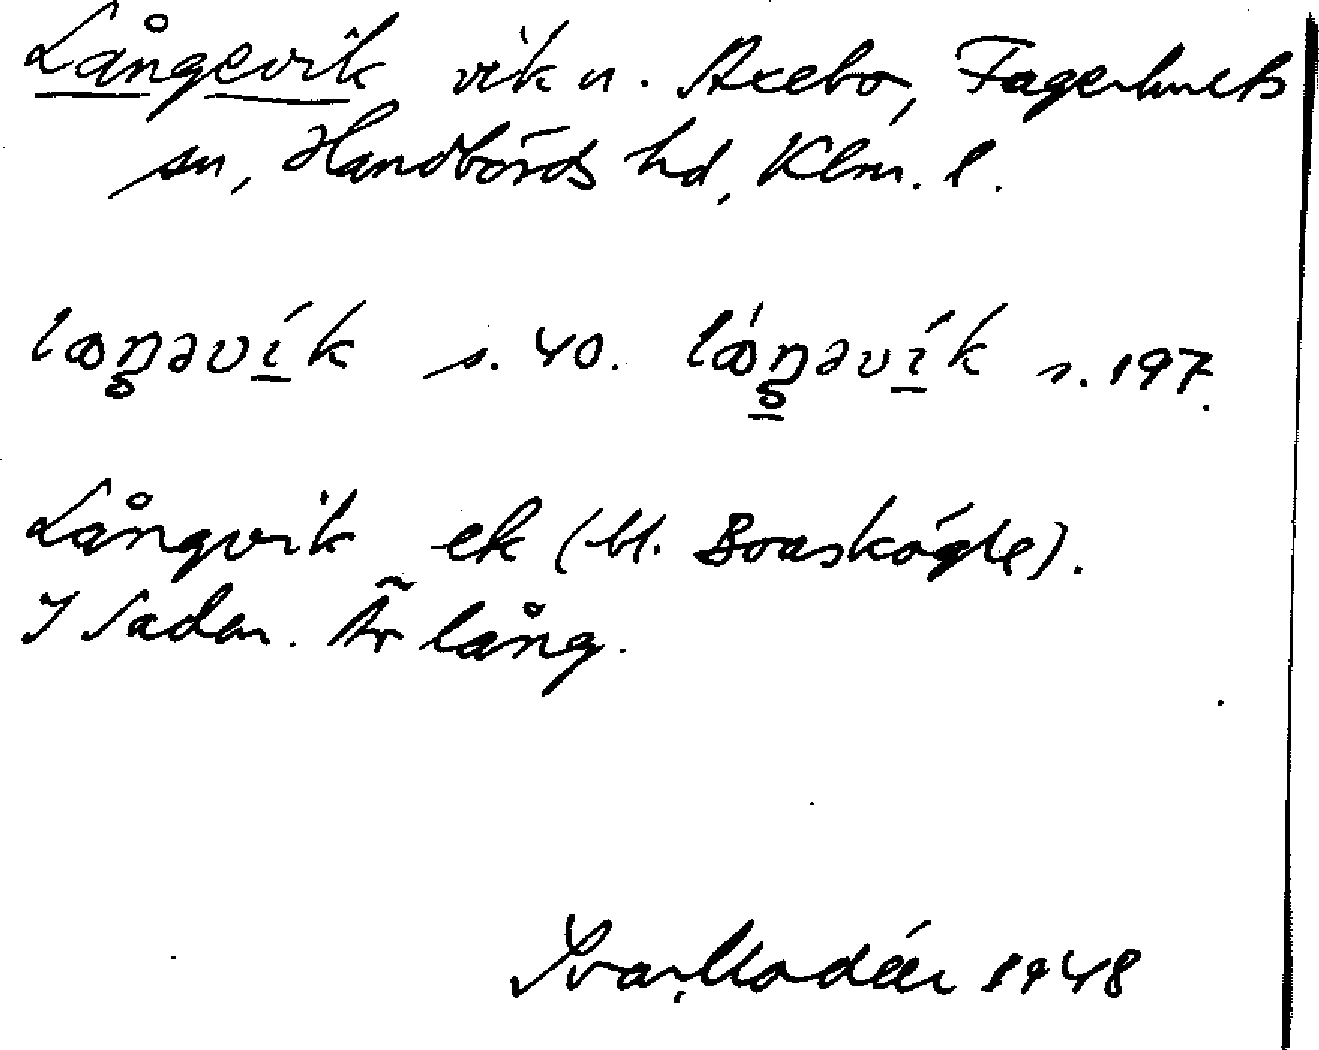 Långevik vik n. Axebo, Fagerhults
sn, Handbörds hd, Klm. l.
s. 40. s. 197.
Långvik ek (bl. Boaskögle).
I Sadar. Är lång.
Ivar Modéer 1948